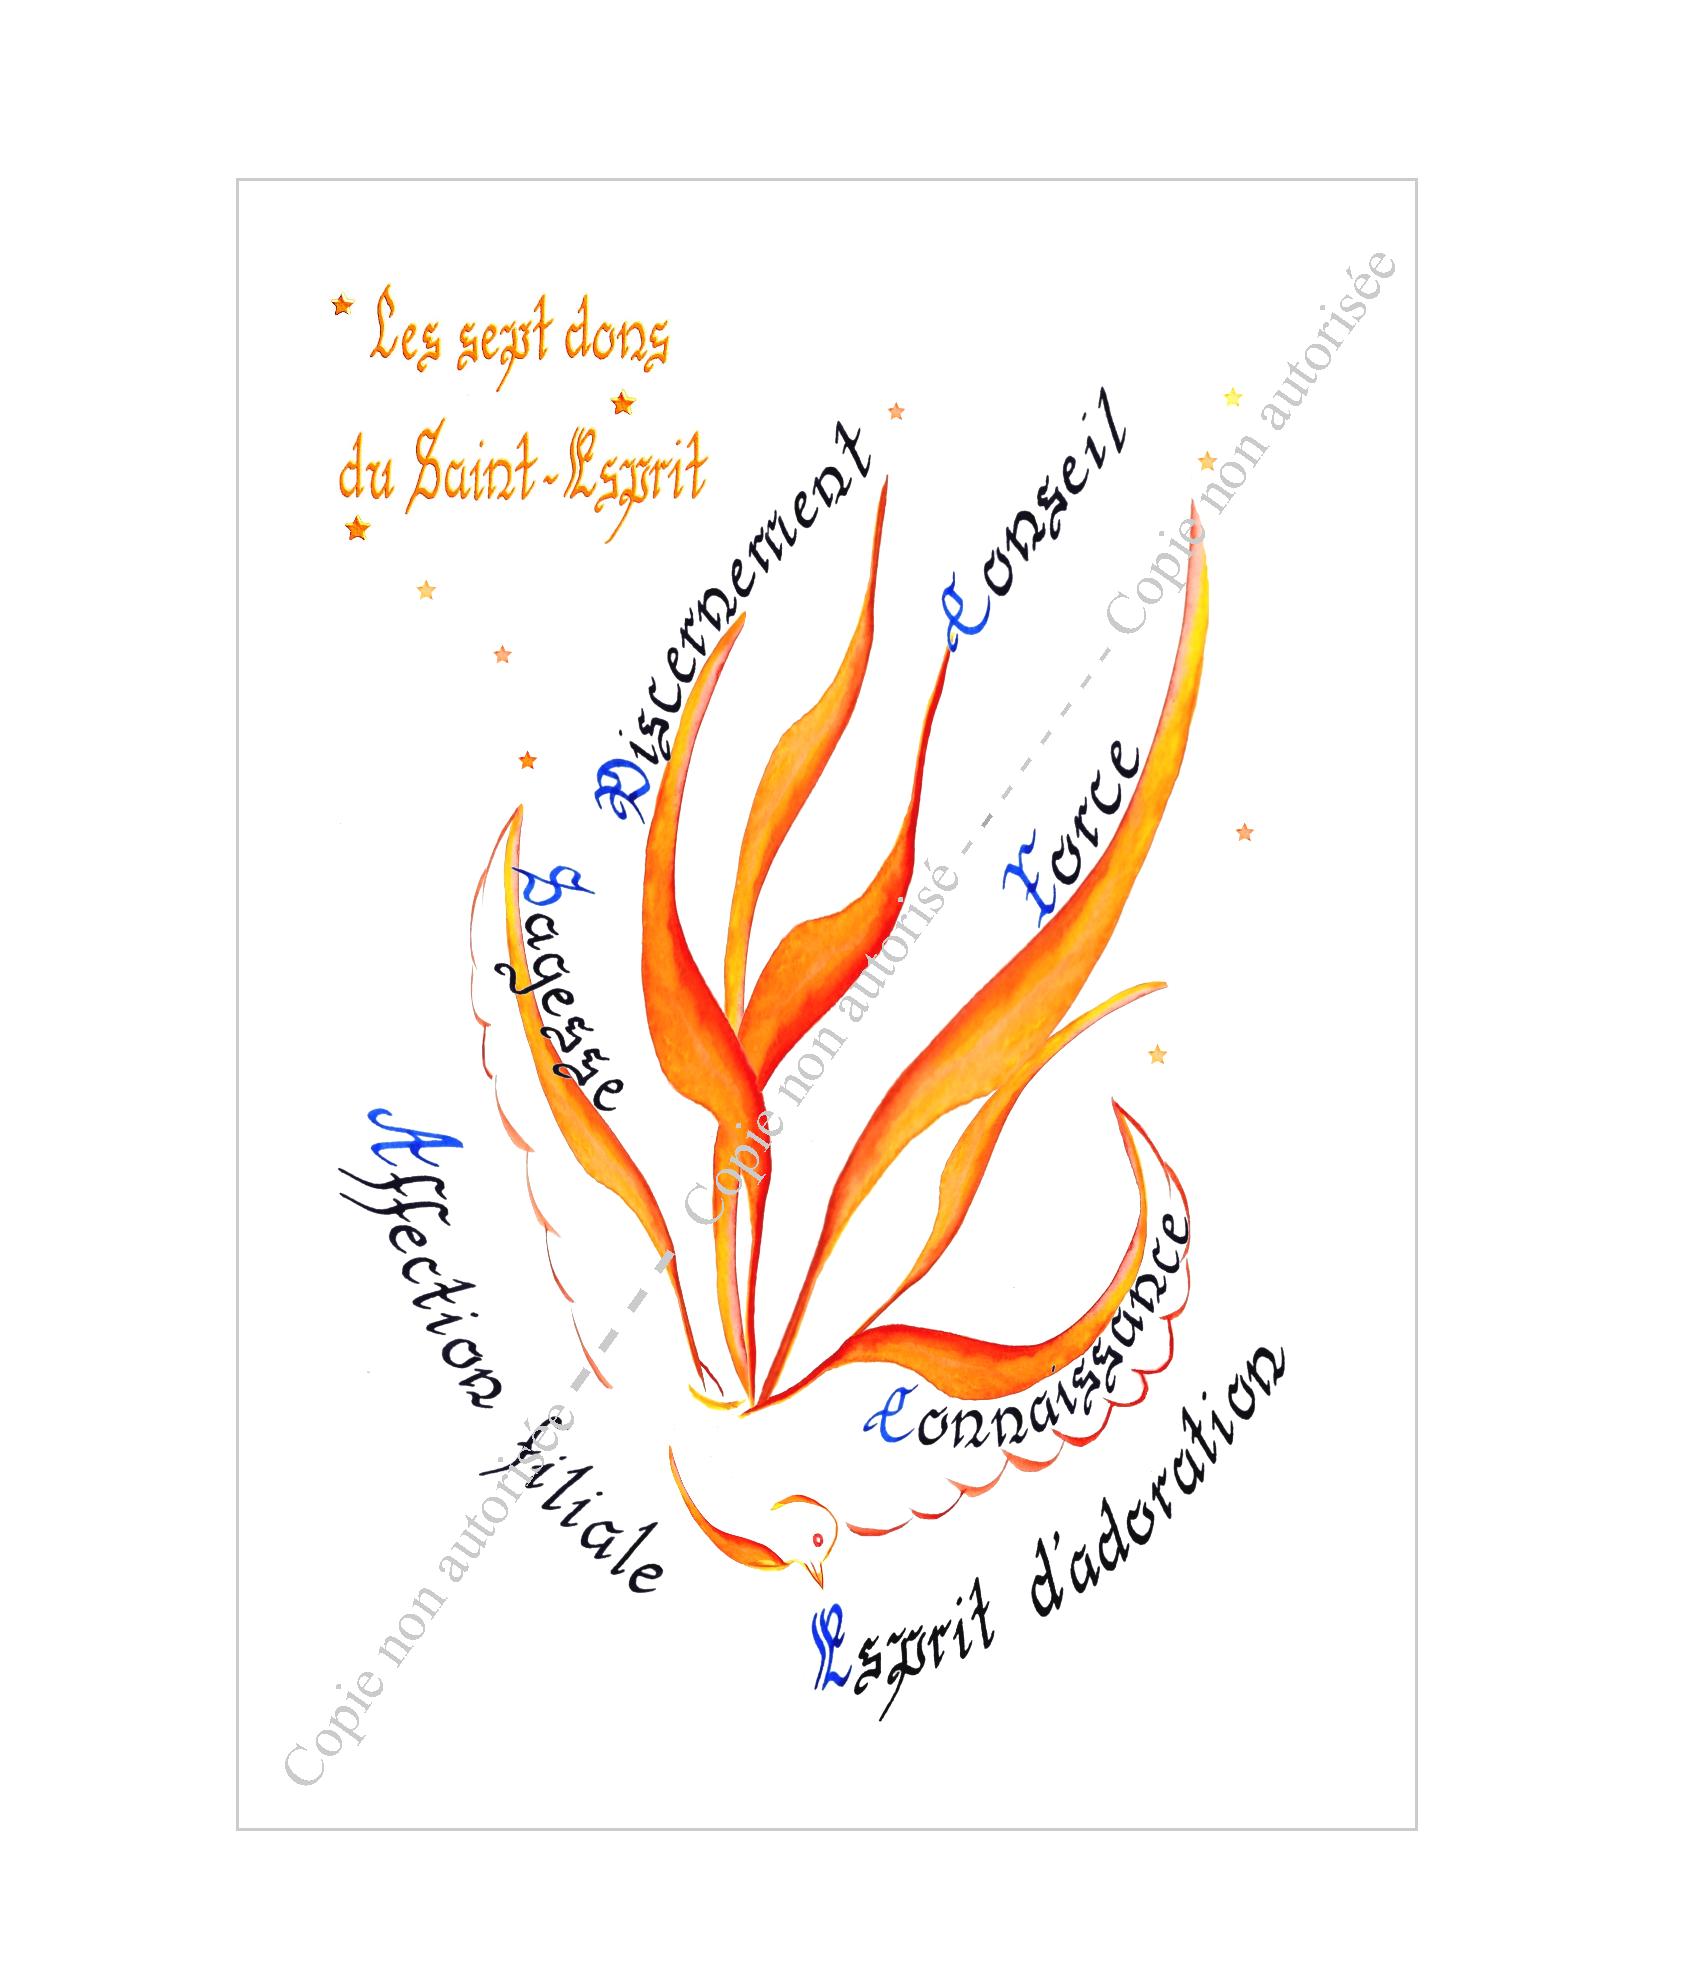 Les sept dons
du Saint-Esprit
Discernement
Conseil
Force
Sagesse
Connaissance
Affection filiale
Esprit d'adoration
Copie non autorisée - - - - - Copie non autorisé - - - - - - - - Copie non autorisée